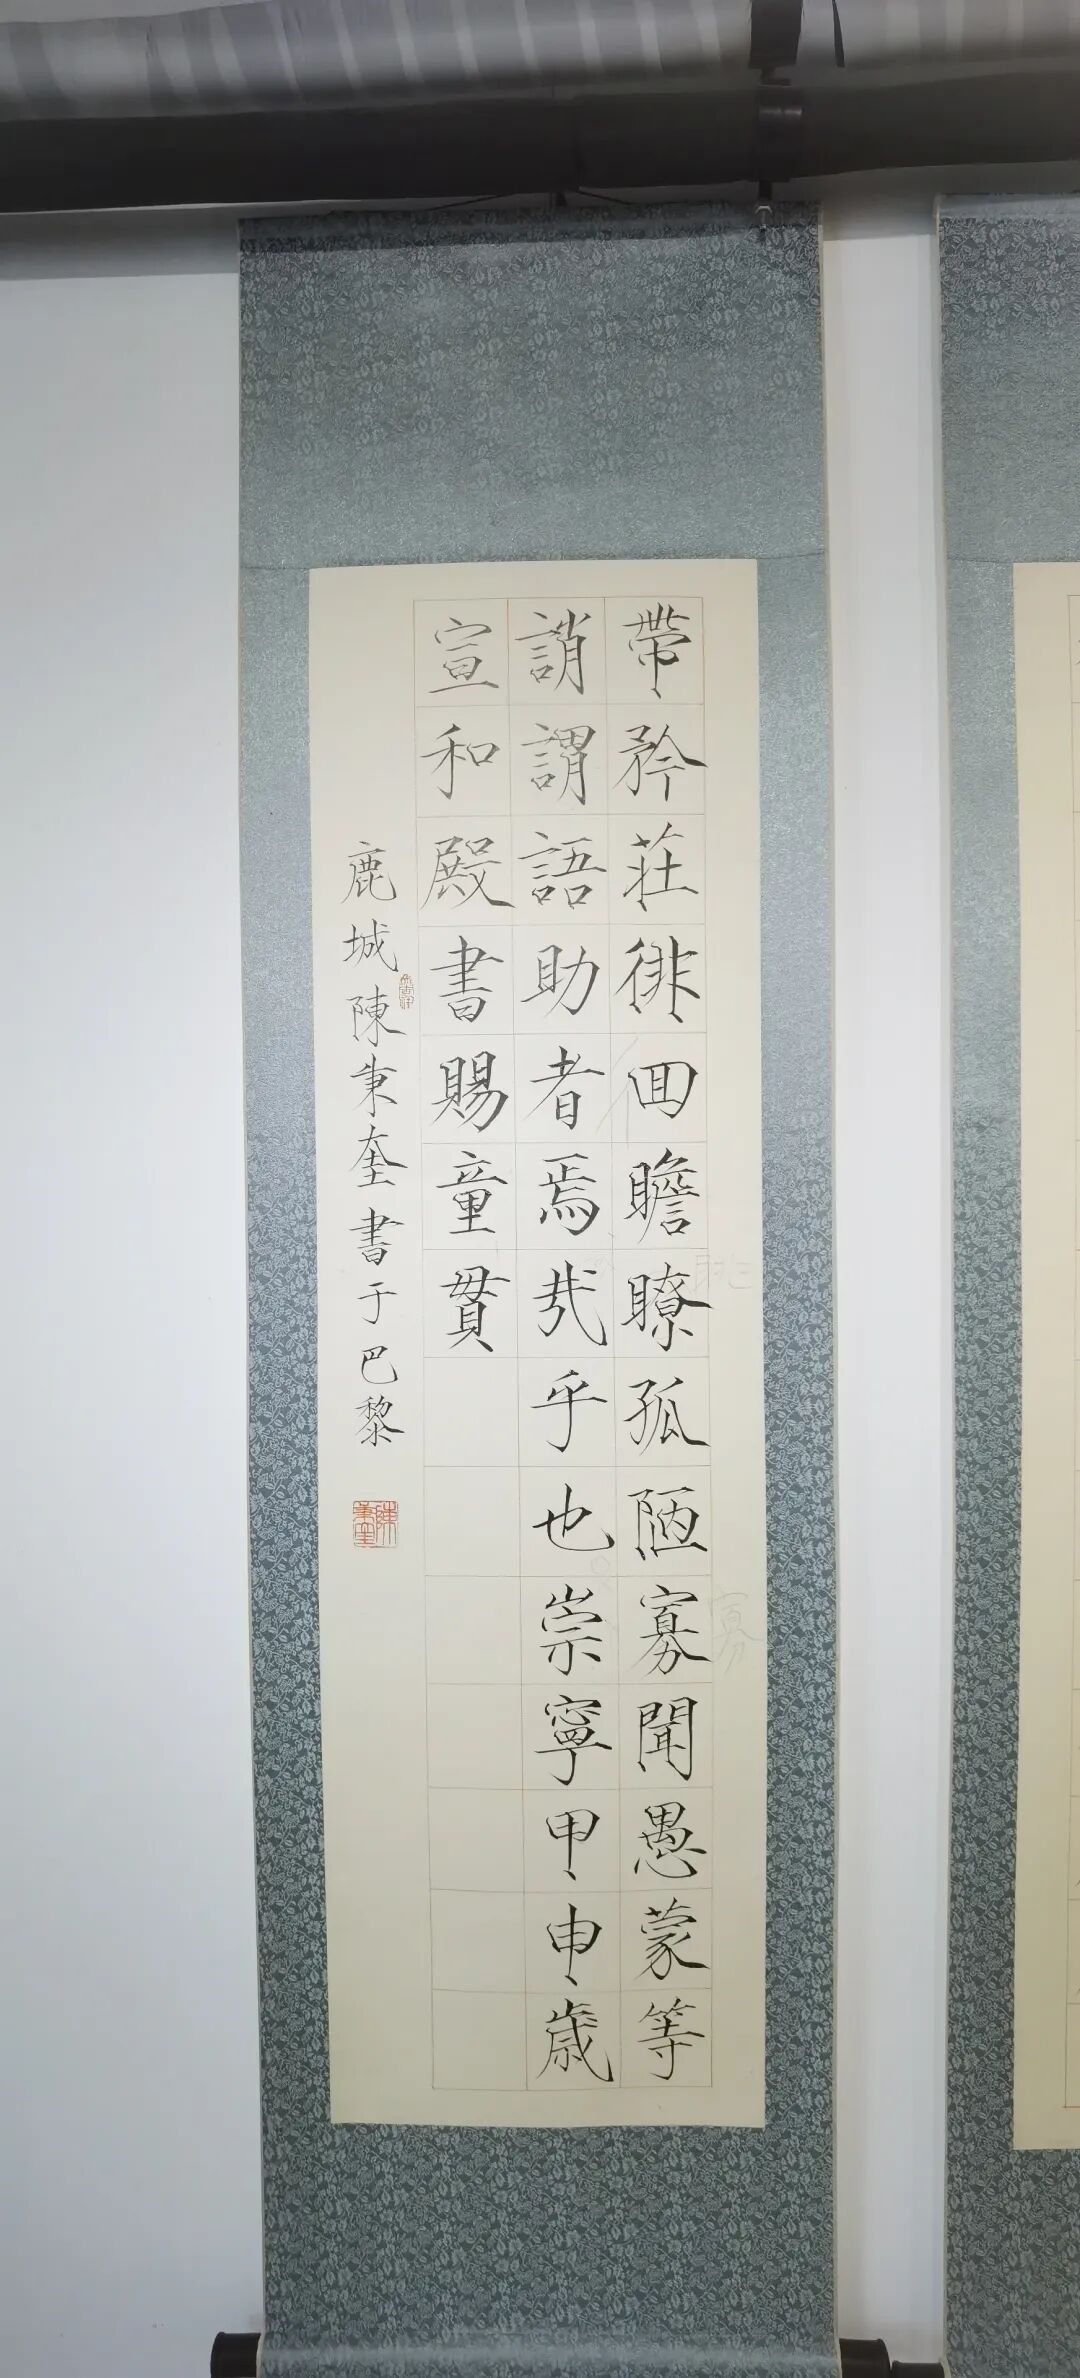 帶矜莊徘回瞻瞭孤陋寡聞愚蒙等
誚謂語助者焉哉乎也崇寧甲申歲
宣和殿書賜童貫
鹿城陳秉奎書于巴黎
陳秉奎